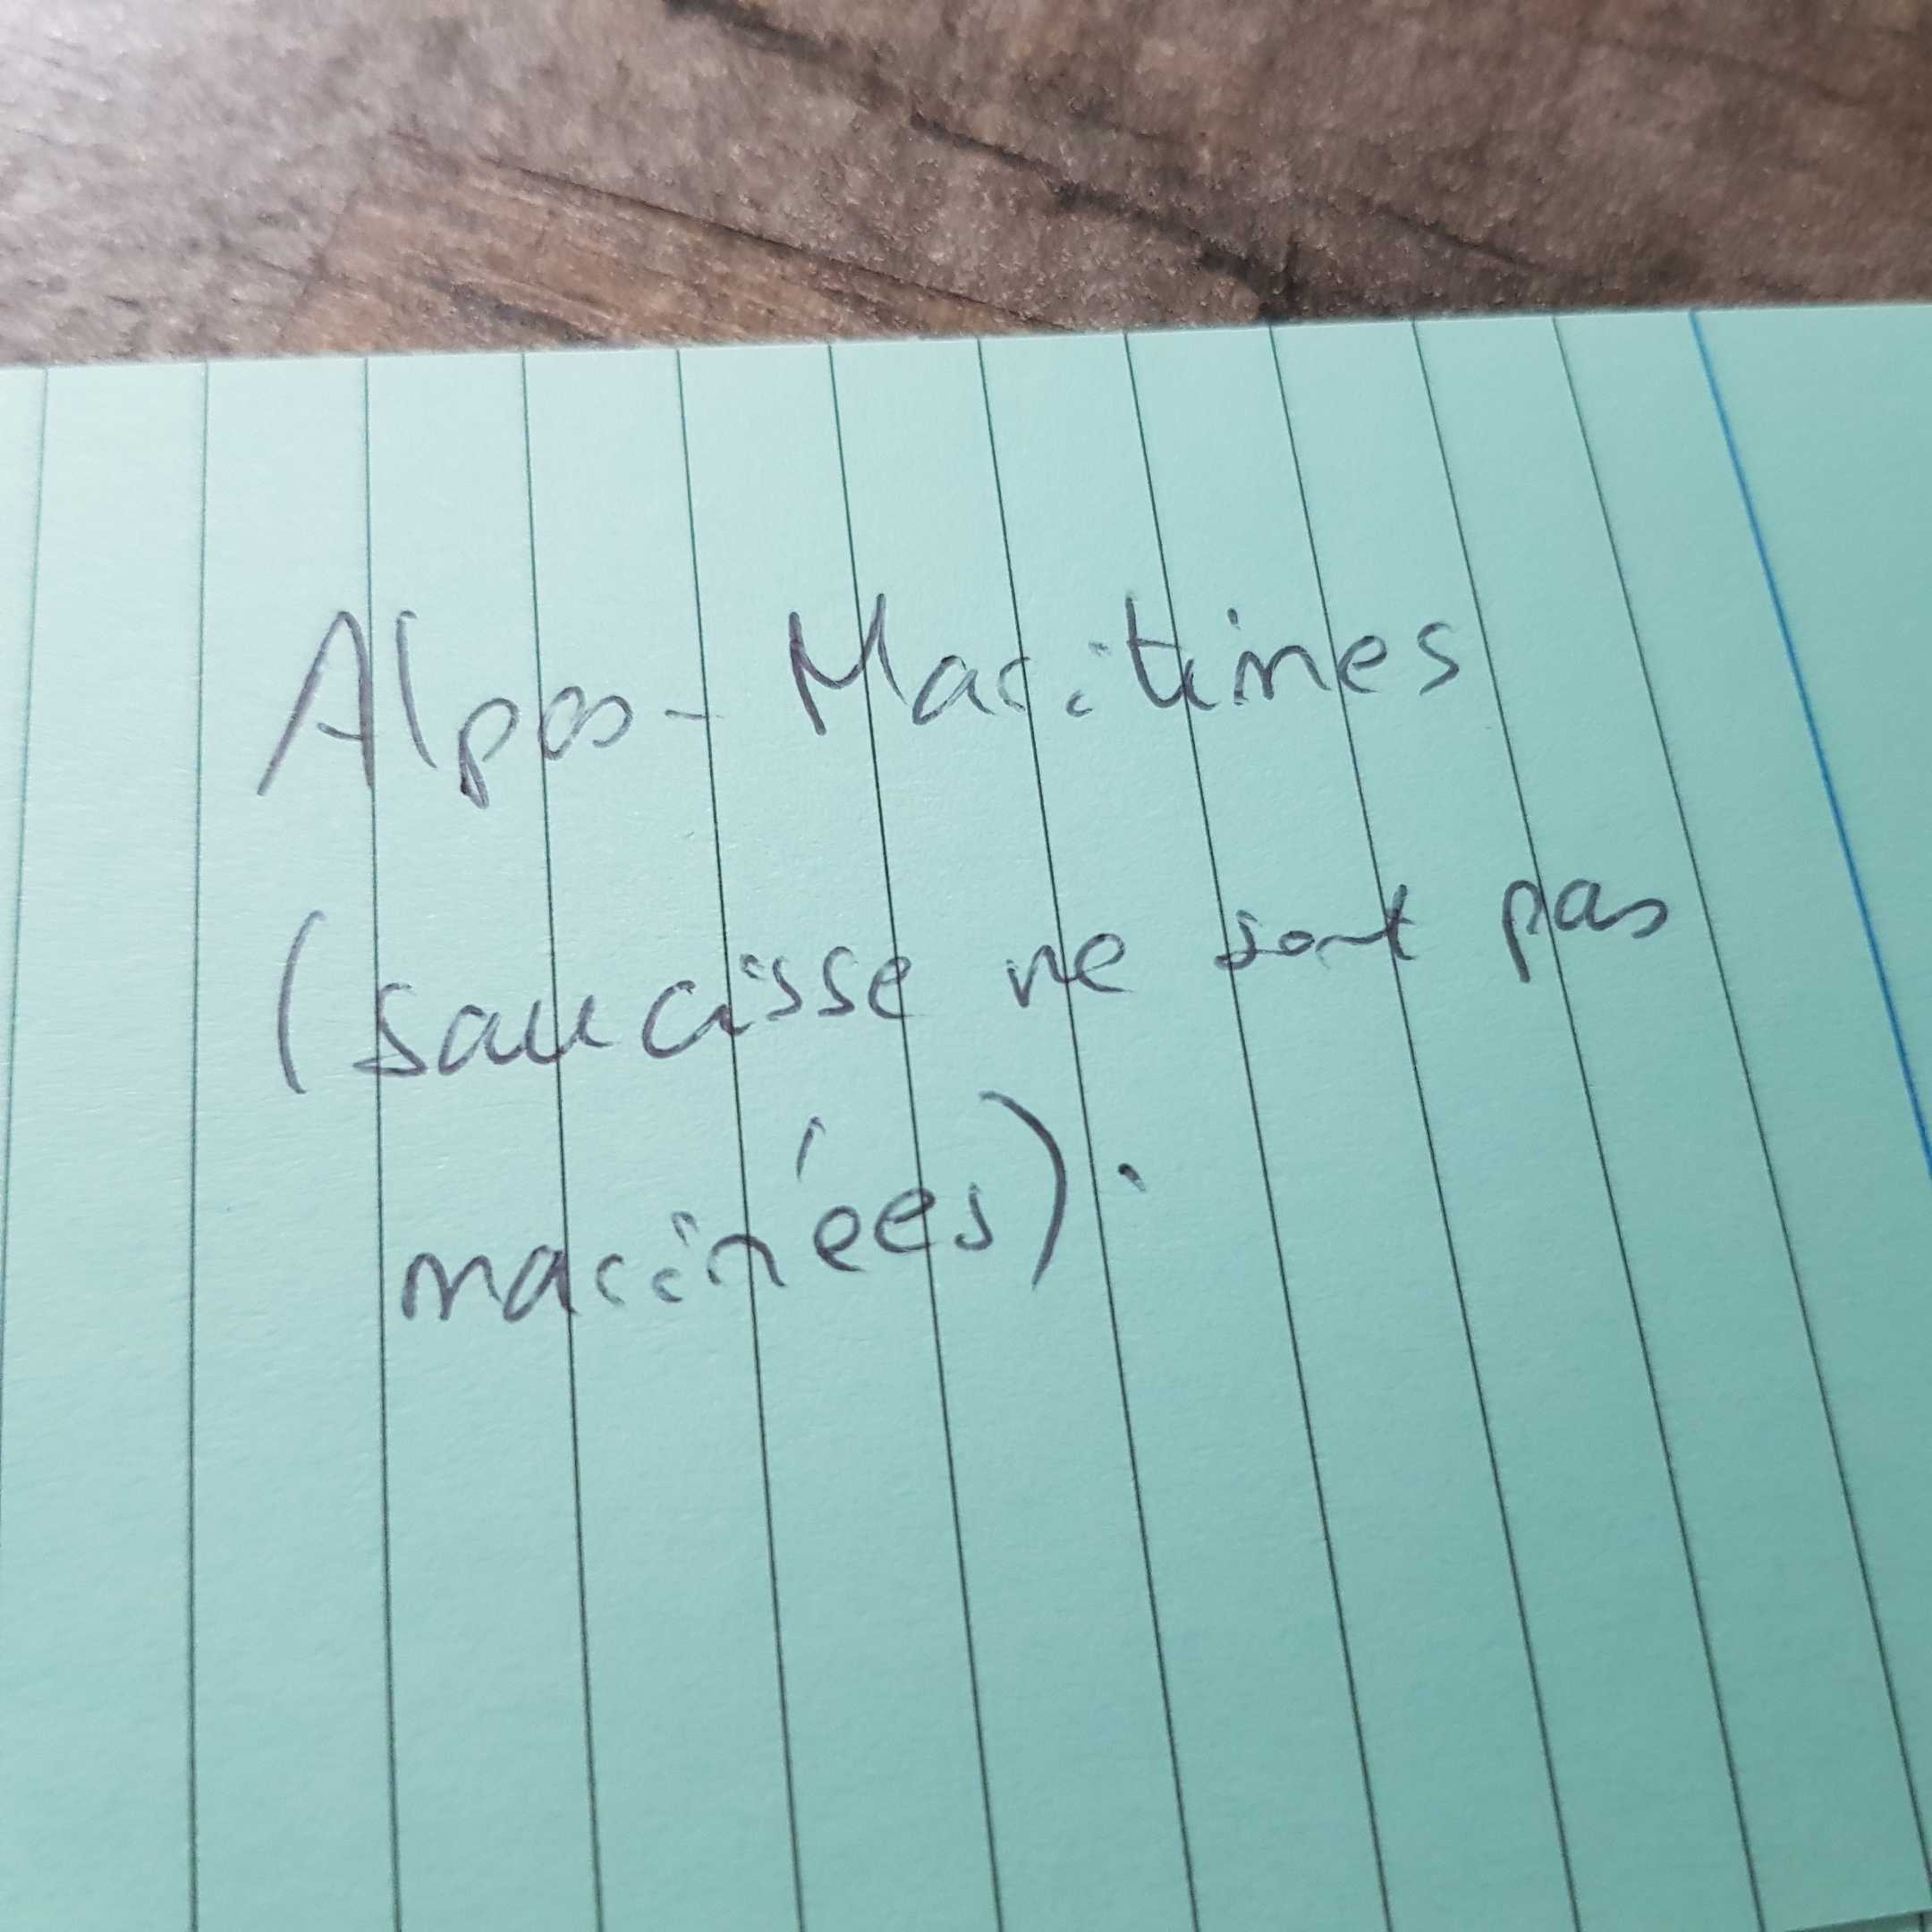 Alpes-Maritimes
(saucisse ne sont pas
marinées).